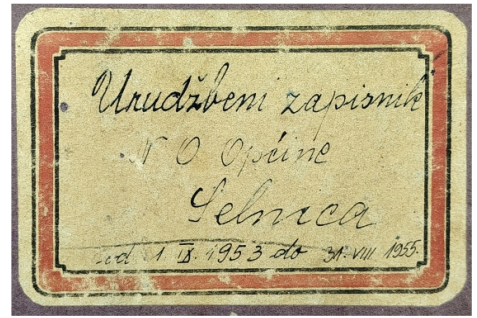 Urudžbeni zapisnik
N O Općine
Selnica
od 1 IX. 1953 do 31. VIII 1955.